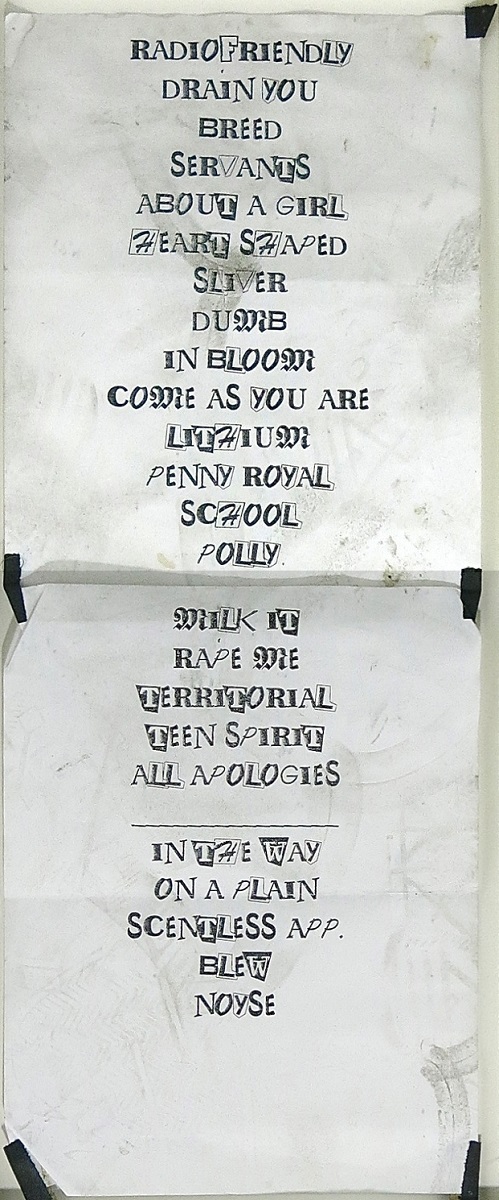 RADIOFRIENDLY
DRAIN YOU
BREED
SERVANTS
ABOUT A GIRL
HEART SHAPED
SLIVER
DUMB
IN BLOOM
COME AS YOU ARE
LITHIUM
PENNY ROYAL
SCHOOL
POLLY.
MILK IT
RAPE ME
TERRITORIAL
TEEN SPIRIT
ALL APOLOGIES
IN THE WAY
ON A PLAIN
SCENTLESS APP.
BLEW
NOYSE